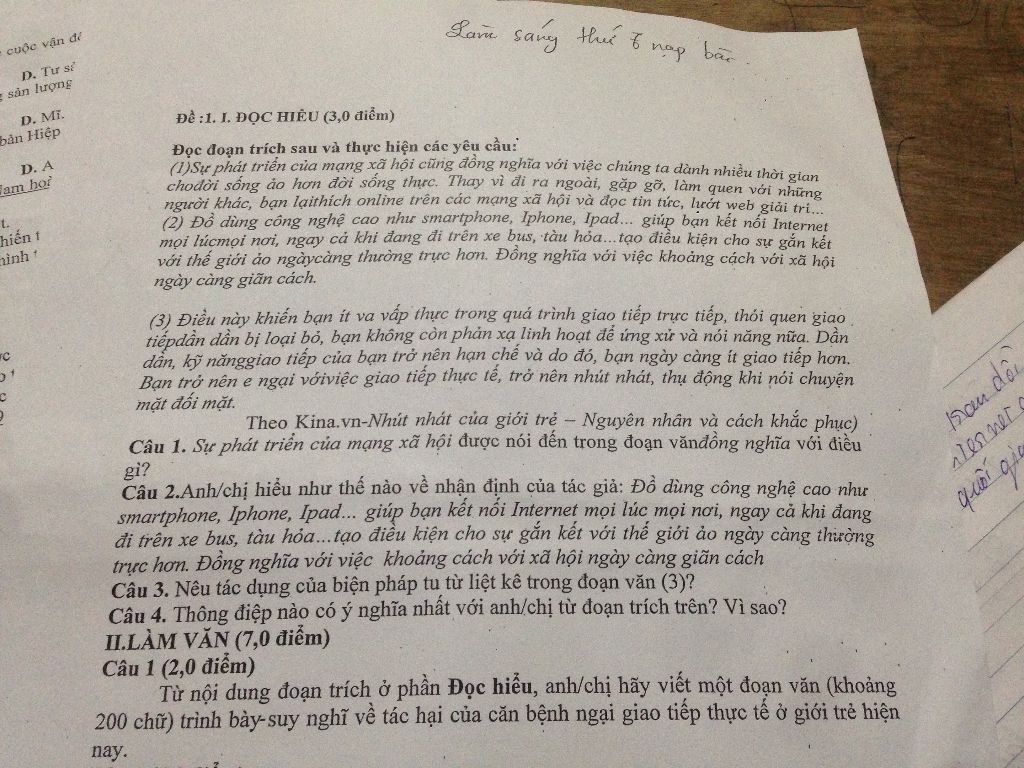 Làm sáng thứ 6 nạp bài.
cuộc vận độ
D. Tư sả
sản lượng
D. Mĩ.
bản Hiệp
D. A
Đề :1. I. ĐỌC HIỂU (3,0 điểm)
Đọc đoạn trích sau và thực hiện các yêu cầu:
(1)Sự phát triển của mạng xã hội cũng đồng nghĩa với việc chúng ta dành nhiều thời gian
chođời sống ảo hơn đời sống thực. Thay vì đi ra ngoài, gặp gỡ, làm quen với những
người khác, bạn lạithích online trên các mạng xã hội và đọc tin tức, lướt web giải trí...
(2) Đồ dùng công nghệ cao như smartphone, Iphone, Ipad... giúp bạn kết nối Internet
mọi lúcmọi nơi, ngay cả khi đang đi trên xe bus, tàu hỏa...tạo điều kiện cho sự gắn kết
với thế giới ảo ngàycàng thường trực hơn. Đồng nghĩa với việc khoảng cách với xã hội
ngày càng giãn cách.
(3) Điều này khiến bạn ít va vấp thực trong quá trình giao tiếp trực tiếp, thói quen giao
tiếpdần dần bị loại bỏ, bạn không còn phản xạ linh hoạt để ứng xử và nói năng nữa. Dần
dần, kỹ nănggiao tiếp của bạn trở nên hạn chế và do đó, bạn ngày càng ít giao tiếp hơn.
Bạn trở nên e ngại vớiviệc giao tiếp thực tế, trở nên nhút nhát, thụ động khi nói chuyện
mặt đối mặt.
Theo Kina.vn-Nhút nhát của giới trẻ – Nguyên nhân và cách khắc phục)
Câu 1. Sự phát triển của mạng xã hội được nói đến trong đoạn vănđồng nghĩa với điều
gì?
Câu 2.Anh/chị hiểu như thế nào về nhận định của tác giả: Đồ dùng công nghệ cao như
smartphone, Iphone, Ipad... giúp bạn kết nối Internet mọi lúc mọi nơi, ngay cả khi đang
đi trên xe bus, tàu hỏa...tạo điều kiện cho sự gắn kết với thế giới ảo ngày càng thường
trực hơn. Đồng nghĩa với việc khoảng cách với xã hội ngày càng giãn cách
Câu 3. Nêu tác dụng của biện pháp tu từ liệt kê trong đoạn văn (3)?
Câu 4. Thông điệp nào có ý nghĩa nhất với anh/chị từ đoạn trích trên? Vì sao?
II.LÀM VĂN (7,0 điểm)
Câu 1 (2,0 điểm)
Từ nội dung đoạn trích ở phần Đọc hiểu, anh/chị hãy viết một đoạn văn (khoảng
200 chữ) trình bày-suy nghĩ về tác hại của căn bệnh ngại giao tiếp thực tế ở giới trẻ hiện
nay.